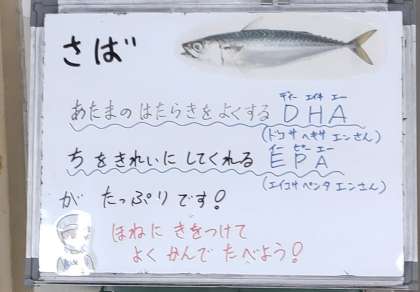 さば
ディー エイチ エー
あたまのはたらきをよくする DHA
(ドコサヘキサエンさん)
イー ピー エー
ちをきれいにしてくれる EPA
(エイコサペンタエンさん)
が たっぷりです!
ほねに きをつけて
よく かんで たべよう!